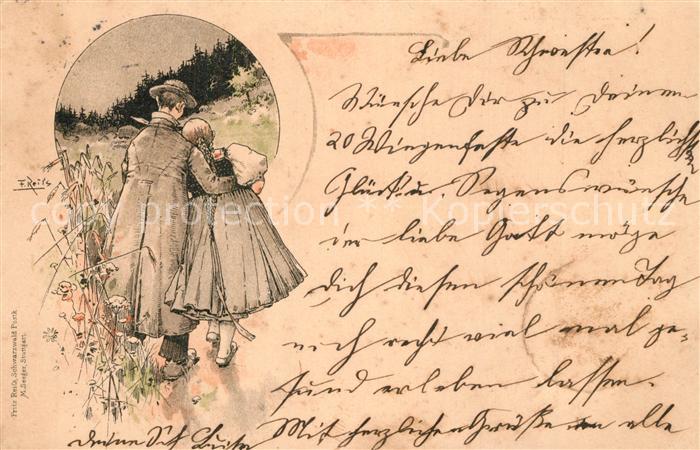 Liebe Schwester!
Wünsche Dir zu Deinem
20 Wiegenfeste die herzlichsten
Glück u. Segenswünsche
der liebe Gott möge
dich diesen schönen Tag
noch recht viel mal ge-
sund erleben lassen.
Mit herzlichen Grüße an alle
deine Luise
F. Reiß
Fritz Reiß, Schwarzwald Postk.
M. Seeger, Stuttgart.
copy protection ** Kopierschutz